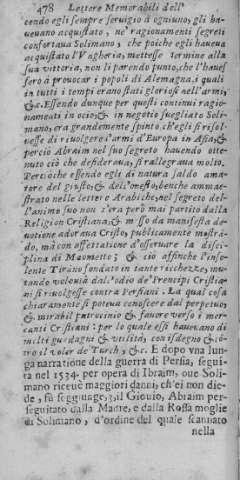 478 Lettere Memorabili dell'
cendo egli sempre seruigio à ogniuno, gli ha-
ueuano acquistato, ne' ragionamenti segreti
confortaua Solimano, che poiche egli haueua
acquistato l'Vngheria, mettesse termine alla
sua vittoria, non li parendo punto, che l'haues-
sero à prouocar i popoli di Alemagna, i quali
in tutti i tempi erano stati gloriosi nell'armi,
&c. Essendo dunque per questi continui ragio-
namenti in ocio, & in negotio suegliato Soli-
mano, era grandemente spinto, ch'egli si risol-
uesse di riuolgere l'armi d'Europa in Asia, &
perciò Abraim nel suo segreto hauendo otte-
nuto ciò che desideraua, si rallegraua molto.
Percioche essendo egli di natura saldo ama-
tore del giusto, & dell'onesto, benche ammae-
strato nelle lettere Arabiche, nel segreto del-
l'animo suo non s'era però mai partito dalla
Religion Cristiana, & mosso da manifesta de-
uotione adoraua Cristo, publicamente mostrã-
do, mà con affettatione d'osseruare la disci-
plina di Maometto; & ciò affinche l'inso-
lente Tiranno fondato in tante ricchezze, mu-
tando volontà dall'odio de' Prencipi Cristia-
ni si riuolgesse contra Persiani. La qual cosa
chiaramente si poteua conoscere dal perpetuo
& mirabil patrocinio & fauore verso i mer-
canti Cristiani: per lo quale essi haueuano di
molti guadagni & vtilità, con isdegno &
il voler de' Turch, &c. E dopo vna lun-
ga narratione della guerra di Persia, segui-
ta nel 1534. per opera di Ibraim, oue Soli-
mano riceuè maggiori danni, ch'ei non die-
de, fù soggiunge; il Giouio, Abraim per-
seguitato dalla Madre, e dalla Rossa moglie
di Solimano, d'ordine del quale
nella